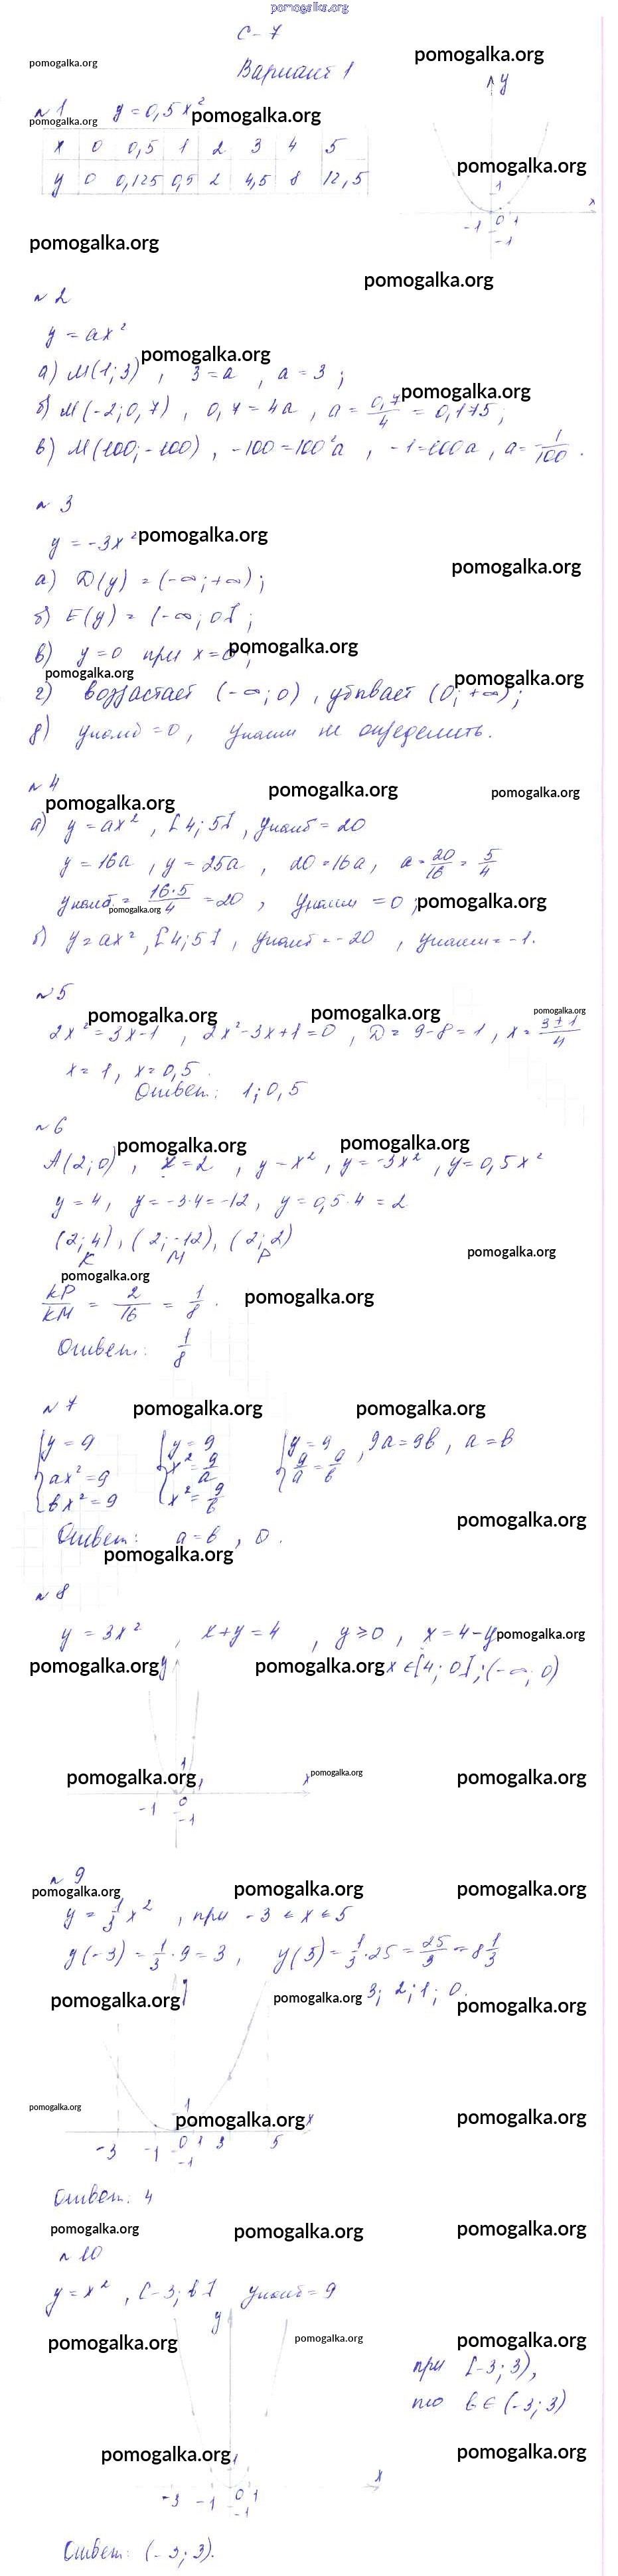 pomogalka.org
С-7
pomogalka.org
pomogalka.org
Вариант 1
y
№1 y = 0,5x²
pomogalka.org
pomogalka.org
x 0 0,5 1 2 3 4 5
y 0 0,125 0,5 2 4,5 8 12,5
pomogalka.org
1
x
-1 0 1
-1
pomogalka.org
pomogalka.org
№2
y = ax²
pomogalka.org
а) M(1; 3), 3 = a, a = 3;
pomogalka.org
б) M(-2; 0,7), 0,7 = 4a, a = 0,7/4 = 0,175;
в) M(100; -100), -100 = 100²a, -1 = 100a, a = 1/100.
№3
y = -3x²
pomogalka.org
pomogalka.org
а) D(y) = (-∞; +∞);
б) E(y) = (-∞; 0];
в) y = 0 при x = 0;
pomogalka.org
pomogalka.org
pomogalka.org
г) возрастает (-∞; 0), убывает (0; +∞);
д) yнаиб = 0, yнаим не определить.
№4
pomogalka.org
pomogalka.org
pomogalka.org
а) y = ax², [4; 5], yнаиб = 20
y = 16a, y = 25a, 20 = 16a, a = 20/16 = 5/4
yнаиб = 16·5/4 = 20, yнаим = 0;
pomogalka.org
pomogalka.org
б) y = ax², [4; 5], yнаиб = -20, yнаим = -1.
№5
pomogalka.org
pomogalka.org
pomogalka.org
2x² = 3x-1, 2x²-3x+1 = 0, D = 9-8 = 1, x = 3±1/4
x = 1, x = 0,5.
Ответ: 1; 0,5
№6
pomogalka.org
pomogalka.org
A(2; 0), x = 2, y = x², y = -3x², y = 0,5x²
y = 4, y = -3·4 = -12, y = 0,5·4 = 2
(2; 4), (2; -12), (2; 2)
K M P
pomogalka.org
pomogalka.org
KP/KM = 2/16 = 1/8.
pomogalka.org
Ответ: 1/8
№7
pomogalka.org
pomogalka.org
y = 9 y = 9 y = 9, 9a = 9b, a = b
ax² = 9 x² = 9/a 9/a = 9/b
bx² = 9 x² = 9/b
pomogalka.org
Ответ: a = b, 0.
pomogalka.org
№8
y = 3x², x+y = 4, y ≥ 0, x = 4-y
pomogalka.org
pomogalka.org
y
pomogalka.org
x ∈ [4; 0]; (-∞; 0)
1
pomogalka.org
1
x
pomogalka.org
pomogalka.org
-1 0
-1
№9
pomogalka.org
pomogalka.org
pomogalka.org
y = 1/3 x², при -3 ≤ x ≤ 5
y(-3) = 1/3·9 = 3, y(5) = 1/3·25 = 25/3 = 8 1/3
pomogalka.org
pomogalka.org
3; 2; 1; 0.
pomogalka.org
pomogalka.org
1
pomogalka.org
x
pomogalka.org
-3 -1 0 1 3 5
-1
Ответ: 4
pomogalka.org
pomogalka.org
pomogalka.org
№10
y = x², [-3; b] yнаиб = 9
y
pomogalka.org
pomogalka.org
pomogalka.org
при [-3; 3),
то b ∈ (-3; 3)
pomogalka.org
1
pomogalka.org
x
-3 -1 0 1
-1
Ответ: (-3; 3).